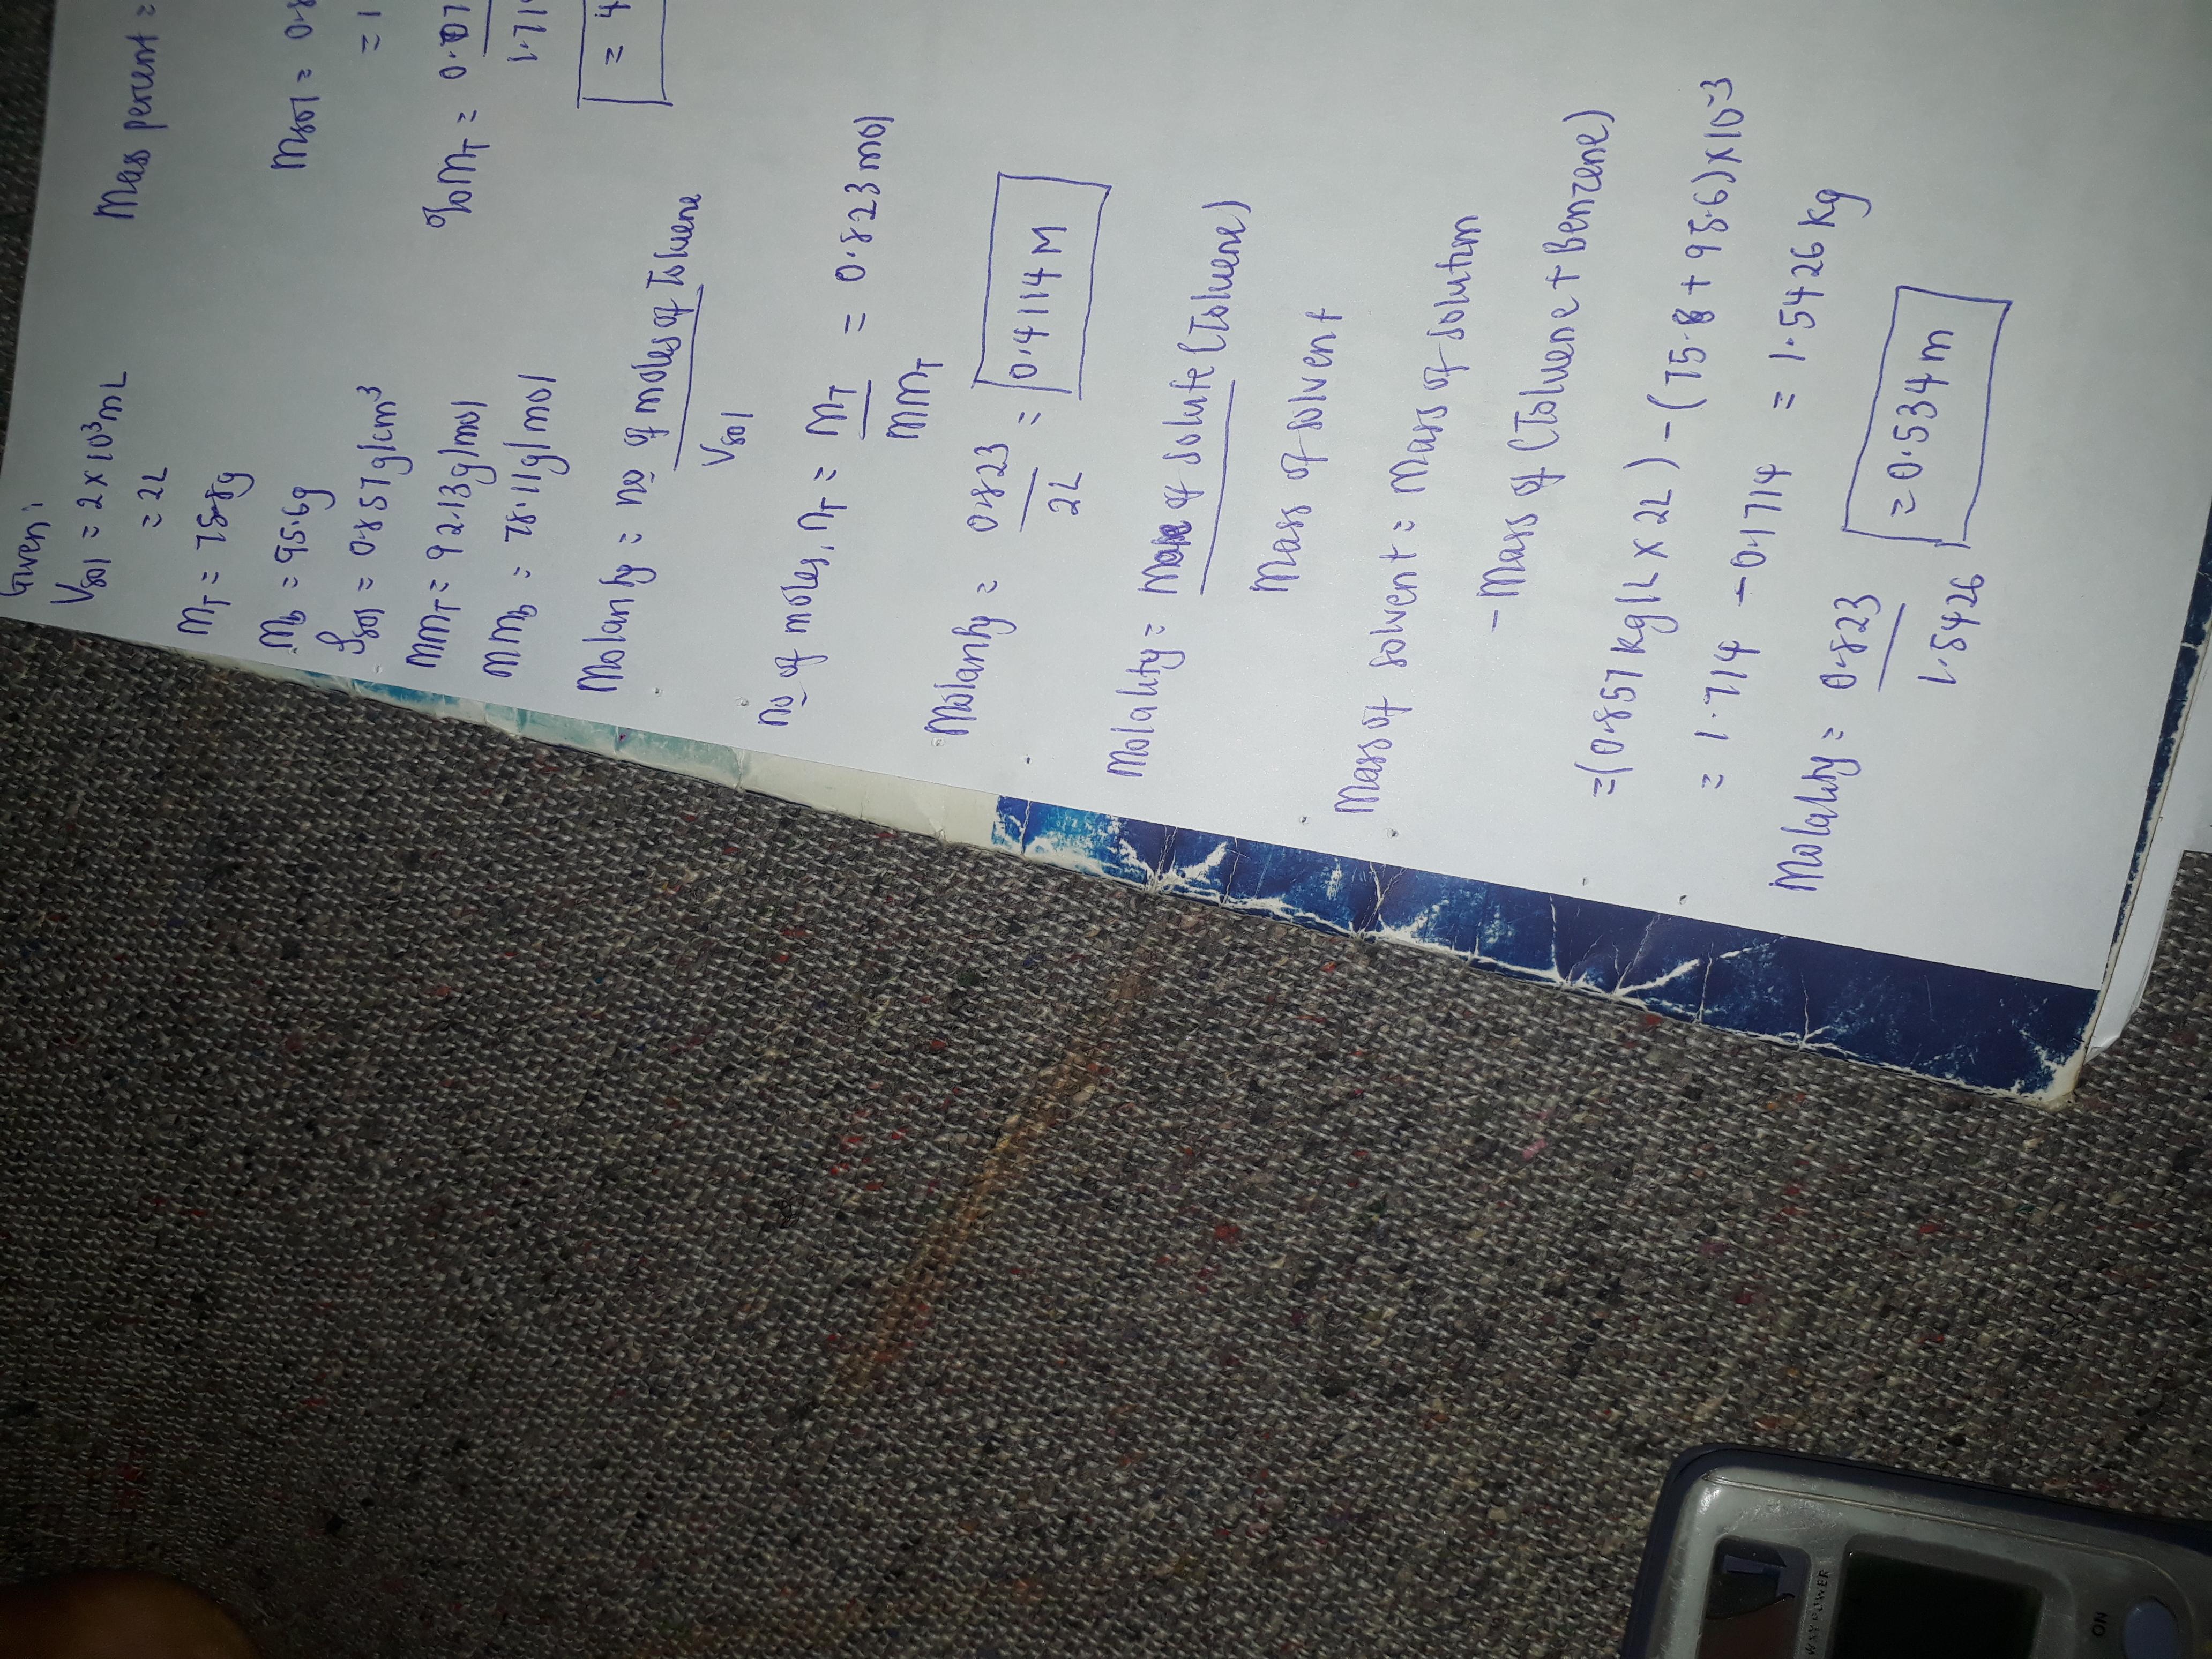 Given:
Vsol = 2 x 10³ mL
= 2L
mT = 75.8g
mb = 95.6g
ρsol = 0.857 g/cm³
MMT = 92.13g/mol
MMb = 78.11g/mol
Molarity = no of moles of Toluene
Vsol
no of moles, nT = mT = 0.823 mol
MMT
Molarity = 0.823 = 0.4114 M
2L
Molality = of solute (Toluene)
Mass of solvent
Mass of solvent = Mass of solution
- Mass of (Toluene + Benzene)
= (0.857 kg/L x 2L) - (75.8 + 95.6) x 10-3
= 1.714 - 0.1714 = 1.5426 kg
Molality = 0.823 = 0.534 m
1.5426
Mass percent =
msol = 0.8
= 1
%mT = 0.07
1.714
= 4
WAY POWER
ON